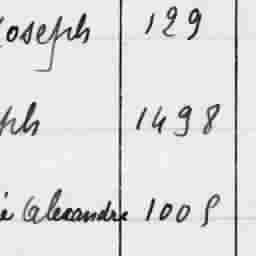 Joseph 129
ph 1498
é Alexandre 1005